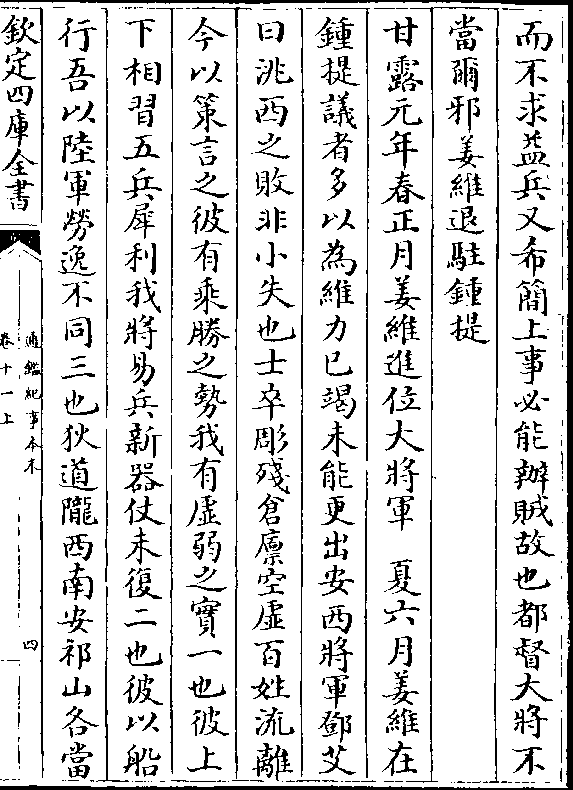 而不求益兵又希簡上事必能辦賊故也都督大將不
當爾邪姜維退駐鍾提
甘露元年春正月姜維進位大將軍　夏六月姜維在
鍾提議者多以為維力已竭未能更出安西將軍鄧艾
曰洮西之敗非小失也士卒彫殘倉廪空虛百姓流離
今以策言之彼有乘勝之勢我有虛弱之實一也彼上
下相習五兵犀利我將易兵新器仗未復二也彼以船
行吾以陸軍勞逸不同三也狄道隴西南安祁山各當
欽定四庫全書
通鑑紀事本末
卷十一上
四